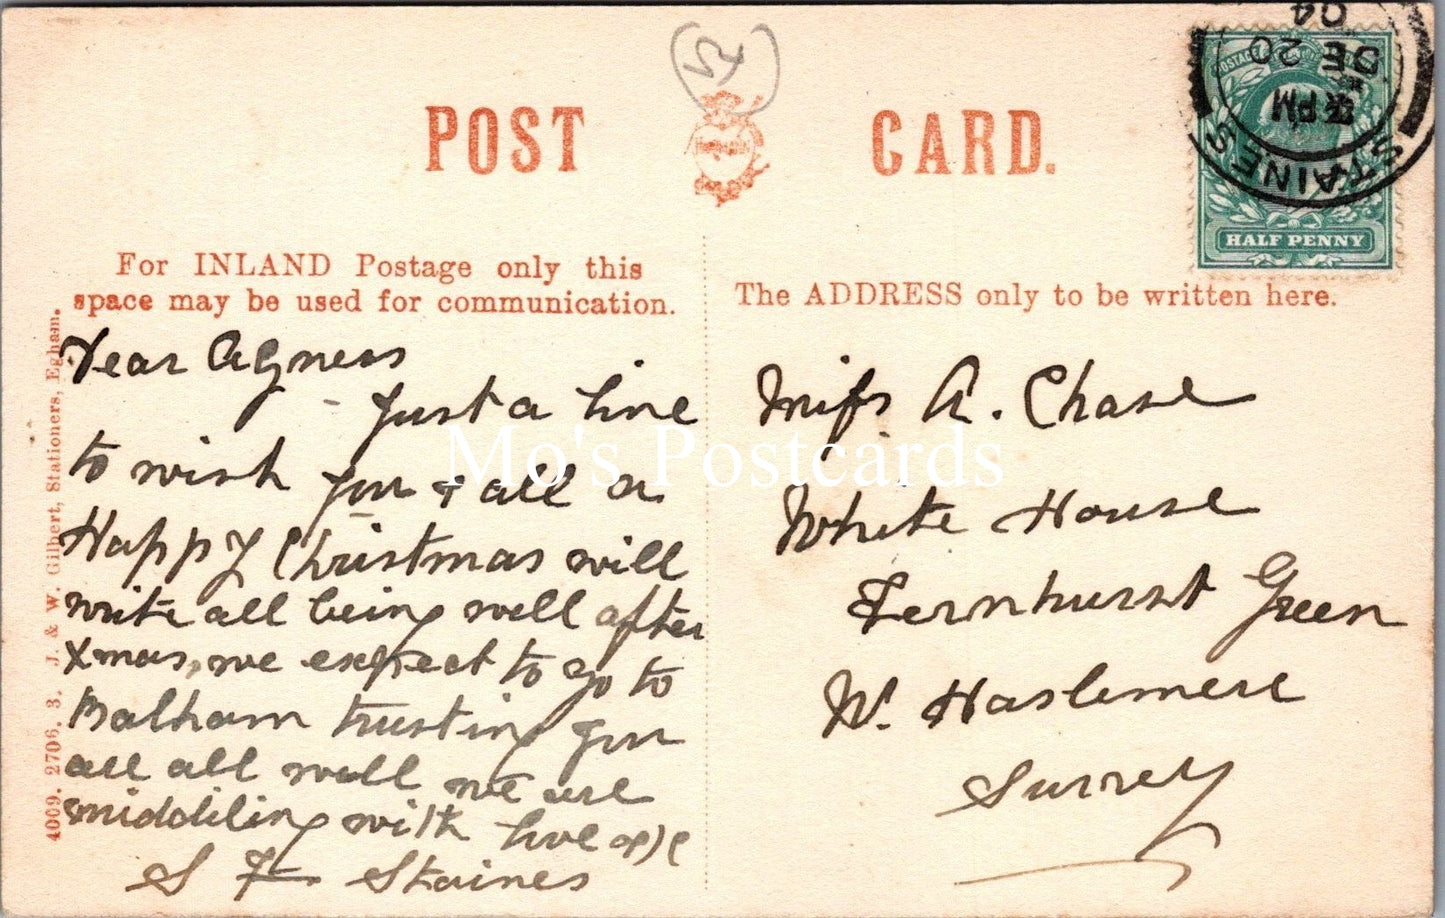 (52)
POST CARD.
STAINES
PM
DE 20
04
POSTAGE
HALF PENNY
For INLAND Postage only this
space may be used for communication.
The ADDRESS only to be written here.
4009. 2706. 3. J. & W. Gilbert, Stationers, Egham.
Dear Agness
Just a line
to wish you & all a
Happy Christmas will
write all being well after
Xmas, we expect to go to
Balham trusting you
are all well we are
middiling with love
S F Staines
Miss A. Chase
White House
Fernhurst Green
N. Haslemere
Surrey
Mo's Postcards